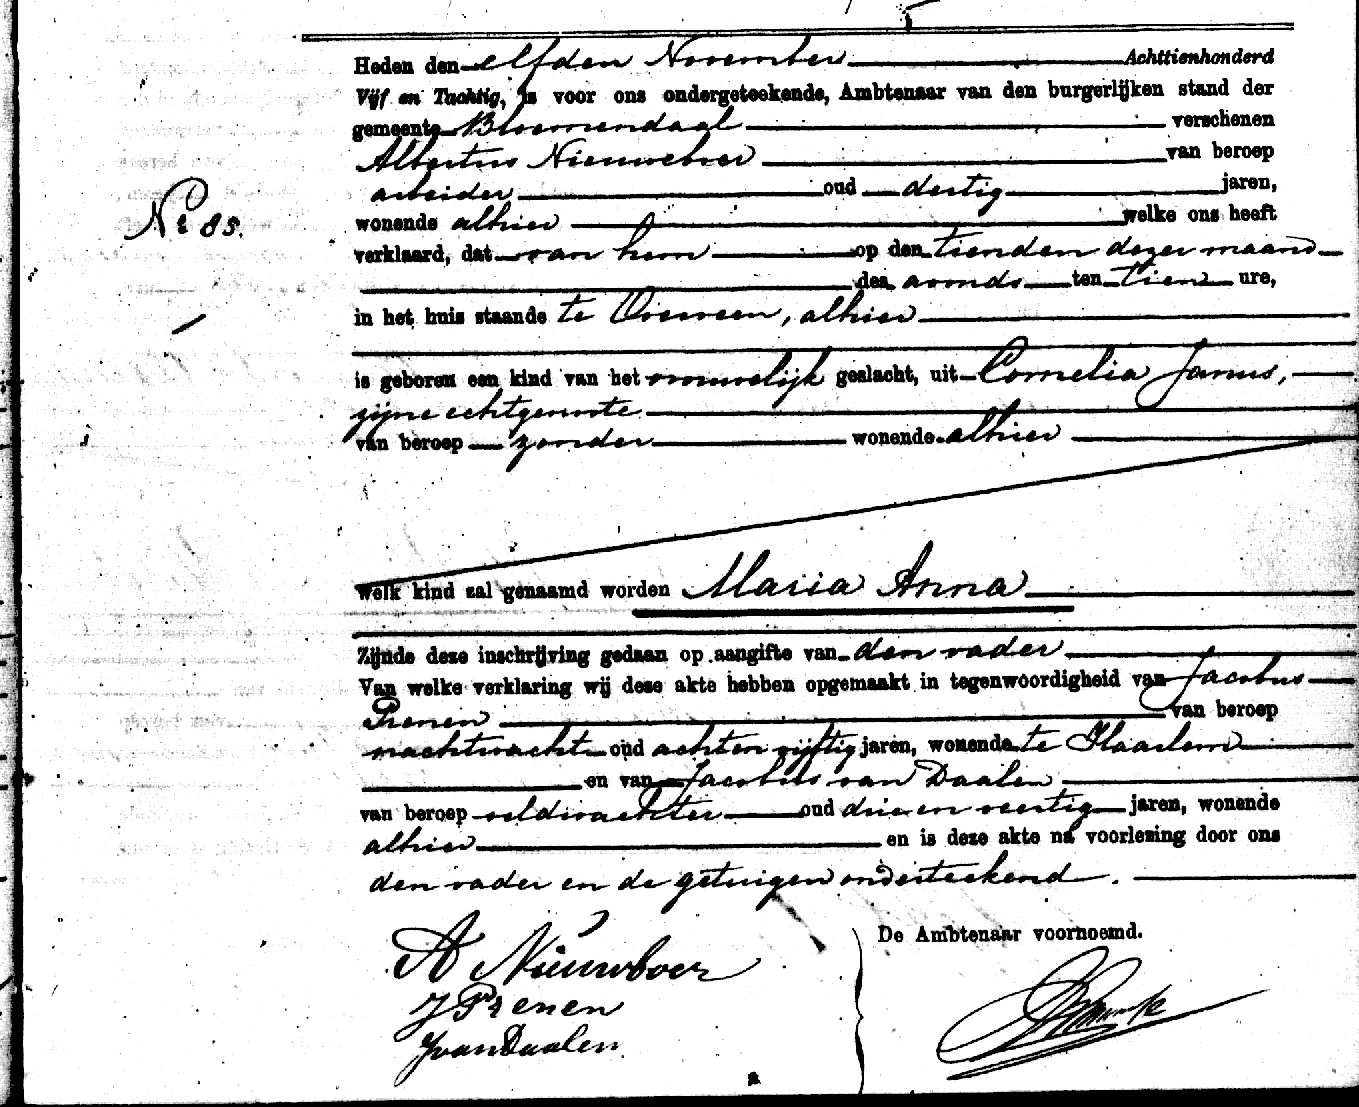 Heden den elfden November Achttienhonderd
Vijf en Tachtig, is voor ons ondergeteekende, Ambtenaar van den burgerlijken stand der
gemeente Bloemendaal verschenen
Albertus Nieuwboer van beroep
arbeider oud dertig jaren,
No 85.
wonende alhier welke ons heeft
verklaard, dat van hem op den tienden dezer maand
des avonds ten tien ure,
in het huis staande te Overveen, alhier
is geboren een kind van het vrouwelijk geslacht, uit Cornelia Janus,
zijne echtgenoote
van beroep zonder wonende alhier
welk kind zal genaamd worden Maria Anna
Zijnde deze inschrijving gedaan op aangifte van den vader
Van welke verklaring wij deze akte hebben opgemaakt in tegenwoordigheid van Jacobus
Prenen van beroep
nachtwacht oud achtenvijftig jaren, wonende te Haarlem
en van Jacobus van Daalen
van beroep veldwachter oud drie en veertig jaren, wonende
alhier en is deze akte na voorlezing door ons
den vader en de getuigen onderteekend.
De Ambtenaar voornoemd.
A Nieuwboer
J Prenen
J van Daalen